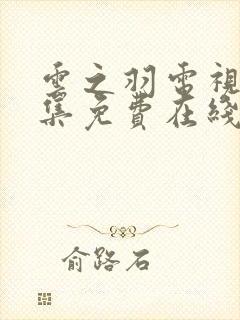 雲之羽電視
集免費在綫
俞路石